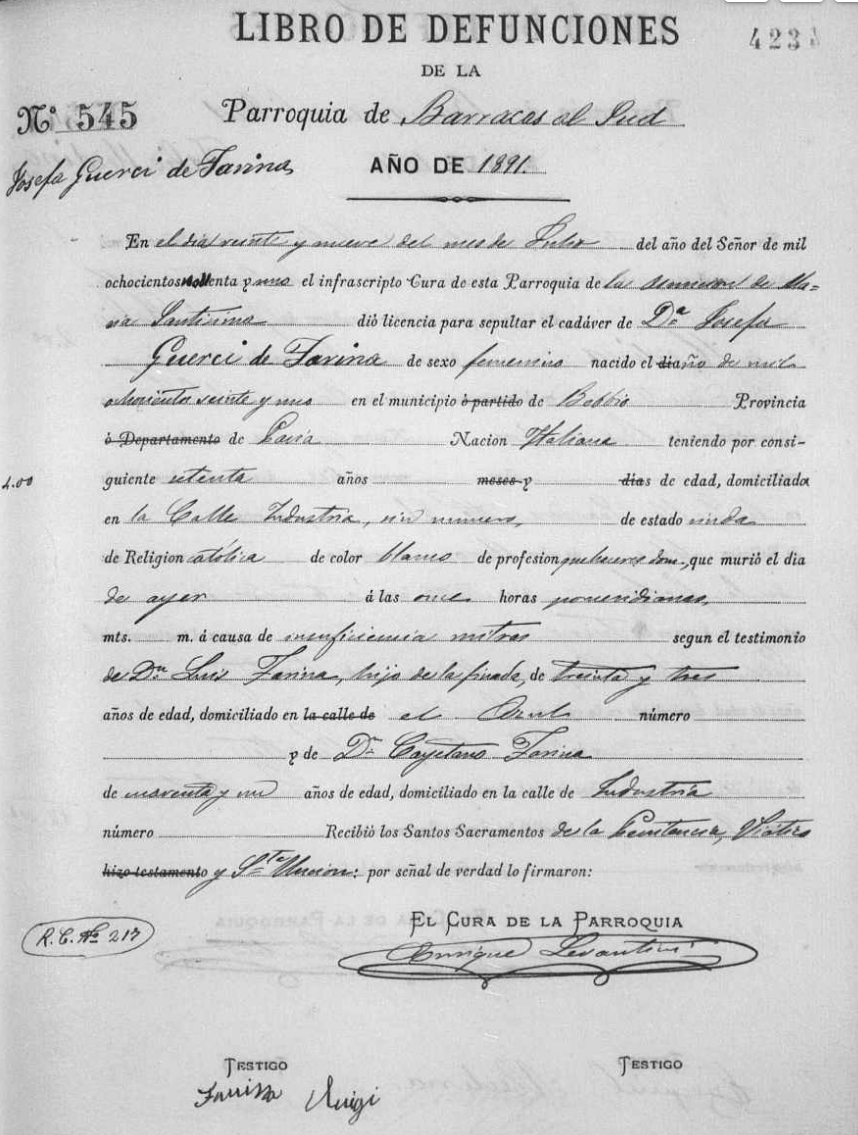 LIBRO DE DEFUNCIONES
423
DE LA
Nº 545
Parroquia de Barracas al Sud
Josefa Guerci de Farina
AÑO DE 1891.
En el dia veinte y nueve del mes de Julio del año del Señor de mil
ochocientos noventa y uno el infrascripto Cura de esta Parroquia de la Asuncion de Ma-
ria Santisima dió licencia para sepultar el cadáver de Dª Josefa
Guerci de Farina de sexo femenino nacido el dia año de mil
ochocientos veinte y uno en el municipio ò partido de Bobbio Provincia
ò Departamento de Pavia Nacion Italiana teniendo por consi-
4.00
guiente setenta años meses y dias de edad, domiciliada
en la Calle Industria, sin numero, de estado viuda
de Religion católica de color blanco de profesion quehaceres dom., que murió el dia
de ayer á las once horas pomeridianas,
mts. m. á causa de insuficiencia mitral segun el testimonio
de Dn Luis Farina, hijo de la finada, de treinta y tres
años de edad, domiciliado en la calle de el Azul número
y de Dn Cayetano Farina
de cuarenta y un años de edad, domiciliado en la calle de Industria
número Recibió los Santos Sacramentos de la Penitencia, Viatico
hizo testamento y Sta Uncion: por señal de verdad lo firmaron:
EL CURA DE LA PARROQUIA
R. C. Nº 217
Enrique Levantini
TESTIGO
TESTIGO
Farina Luigi